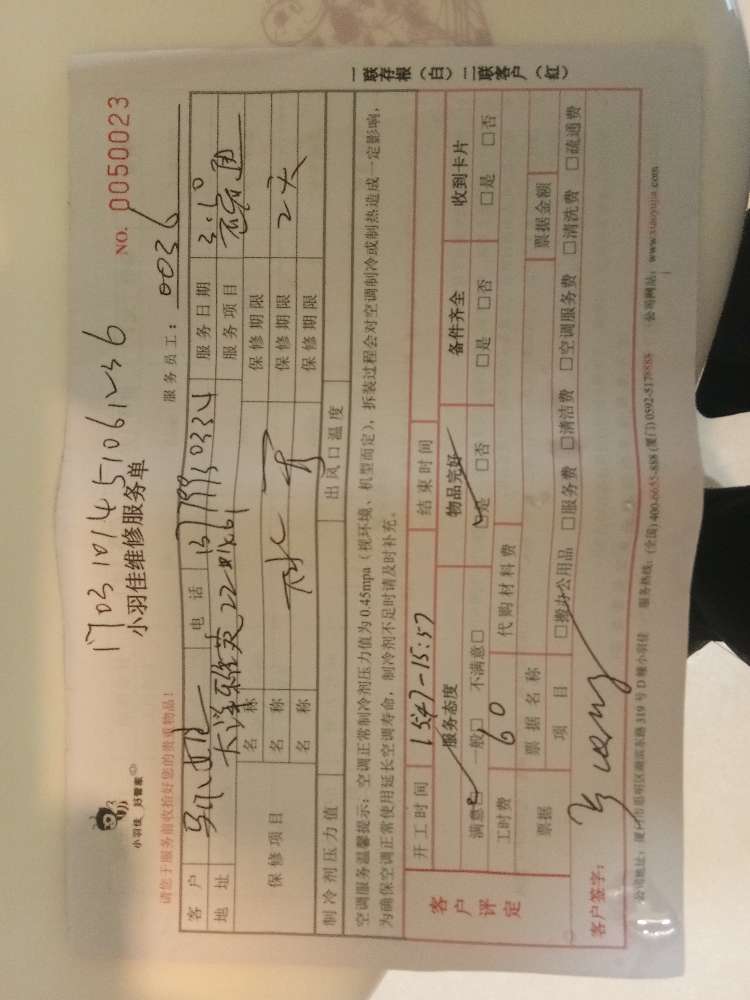 1703101451061236
小羽佳 好管家
小羽佳维修服务单
NO. 0050023
请您于服务前收拾好您的贵重物品!
服务员工: 0036
客户 电话 服务日期 3.10
地址 服务项目
保修项目 名称 保修期限
名称 保修期限 2天
名称 保修期限
制冷剂压力值 出风口温度
空调服务温馨提示:空调正常制冷剂压力值为0.45mpa(视环境、机型而定),拆装过程会对空调制冷或制热造成一定影响,
为确保空调正常使用延长空调寿命,制冷剂不足时请及时补充。
客户评定 开工时间 15:47-15:57 结束时间
服务态度 物品完好 备件齐全 收到卡片
满意□ 一般□ 不满意□ □是 □否 □是 □否 □是 □否
工时费 60 代购材料费
票据 票据名称 票据金额
项目 □搬办公用品 □服务费 □清洁费 □空调服务费 □清洗费 □疏通费
客户签字:
公司地址:厦门市思明区湖滨东路319号D幢小羽佳 服务热线:(全国)400-6655-888 (厦门)0592-5178888 公司网站:www.xiaoyujia.com
一联存根(白)二联客户(红)